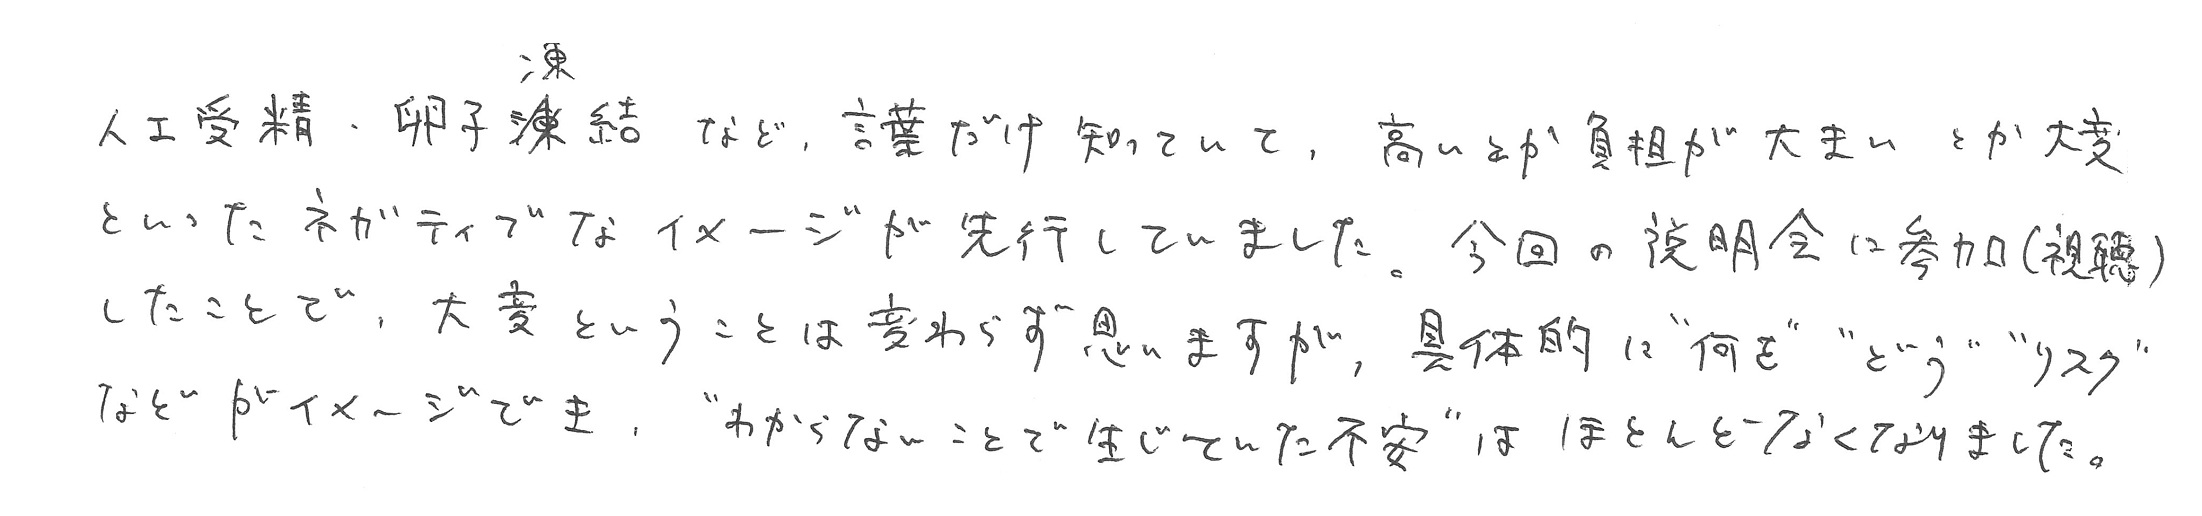 凍
人工受精・卵子凍結 など、言葉だけ知っていて、高いとか負担が大きい とか大変
といったネガティブなイメージが先行していました。今回の説明会に参加(視聴)
したことで、大変ということは変わらず思いますが、具体的に"何を" "どう" "リスク"
などがイメージでき、"わからないことで生じていた不安"は ほとんどなくなりました。